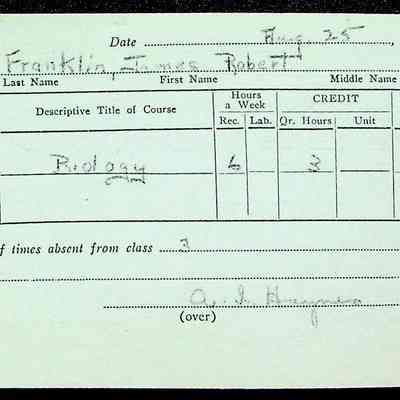 Date Aug. 25,
Franklin, James Robert
Last Name First Name Middle Name
Hours a Week CREDIT
Descriptive Title of Course Rec. Lab. Qr. Hours Unit
Biology 6 3
f times absent from class 3
A. I. Haynes
(over)